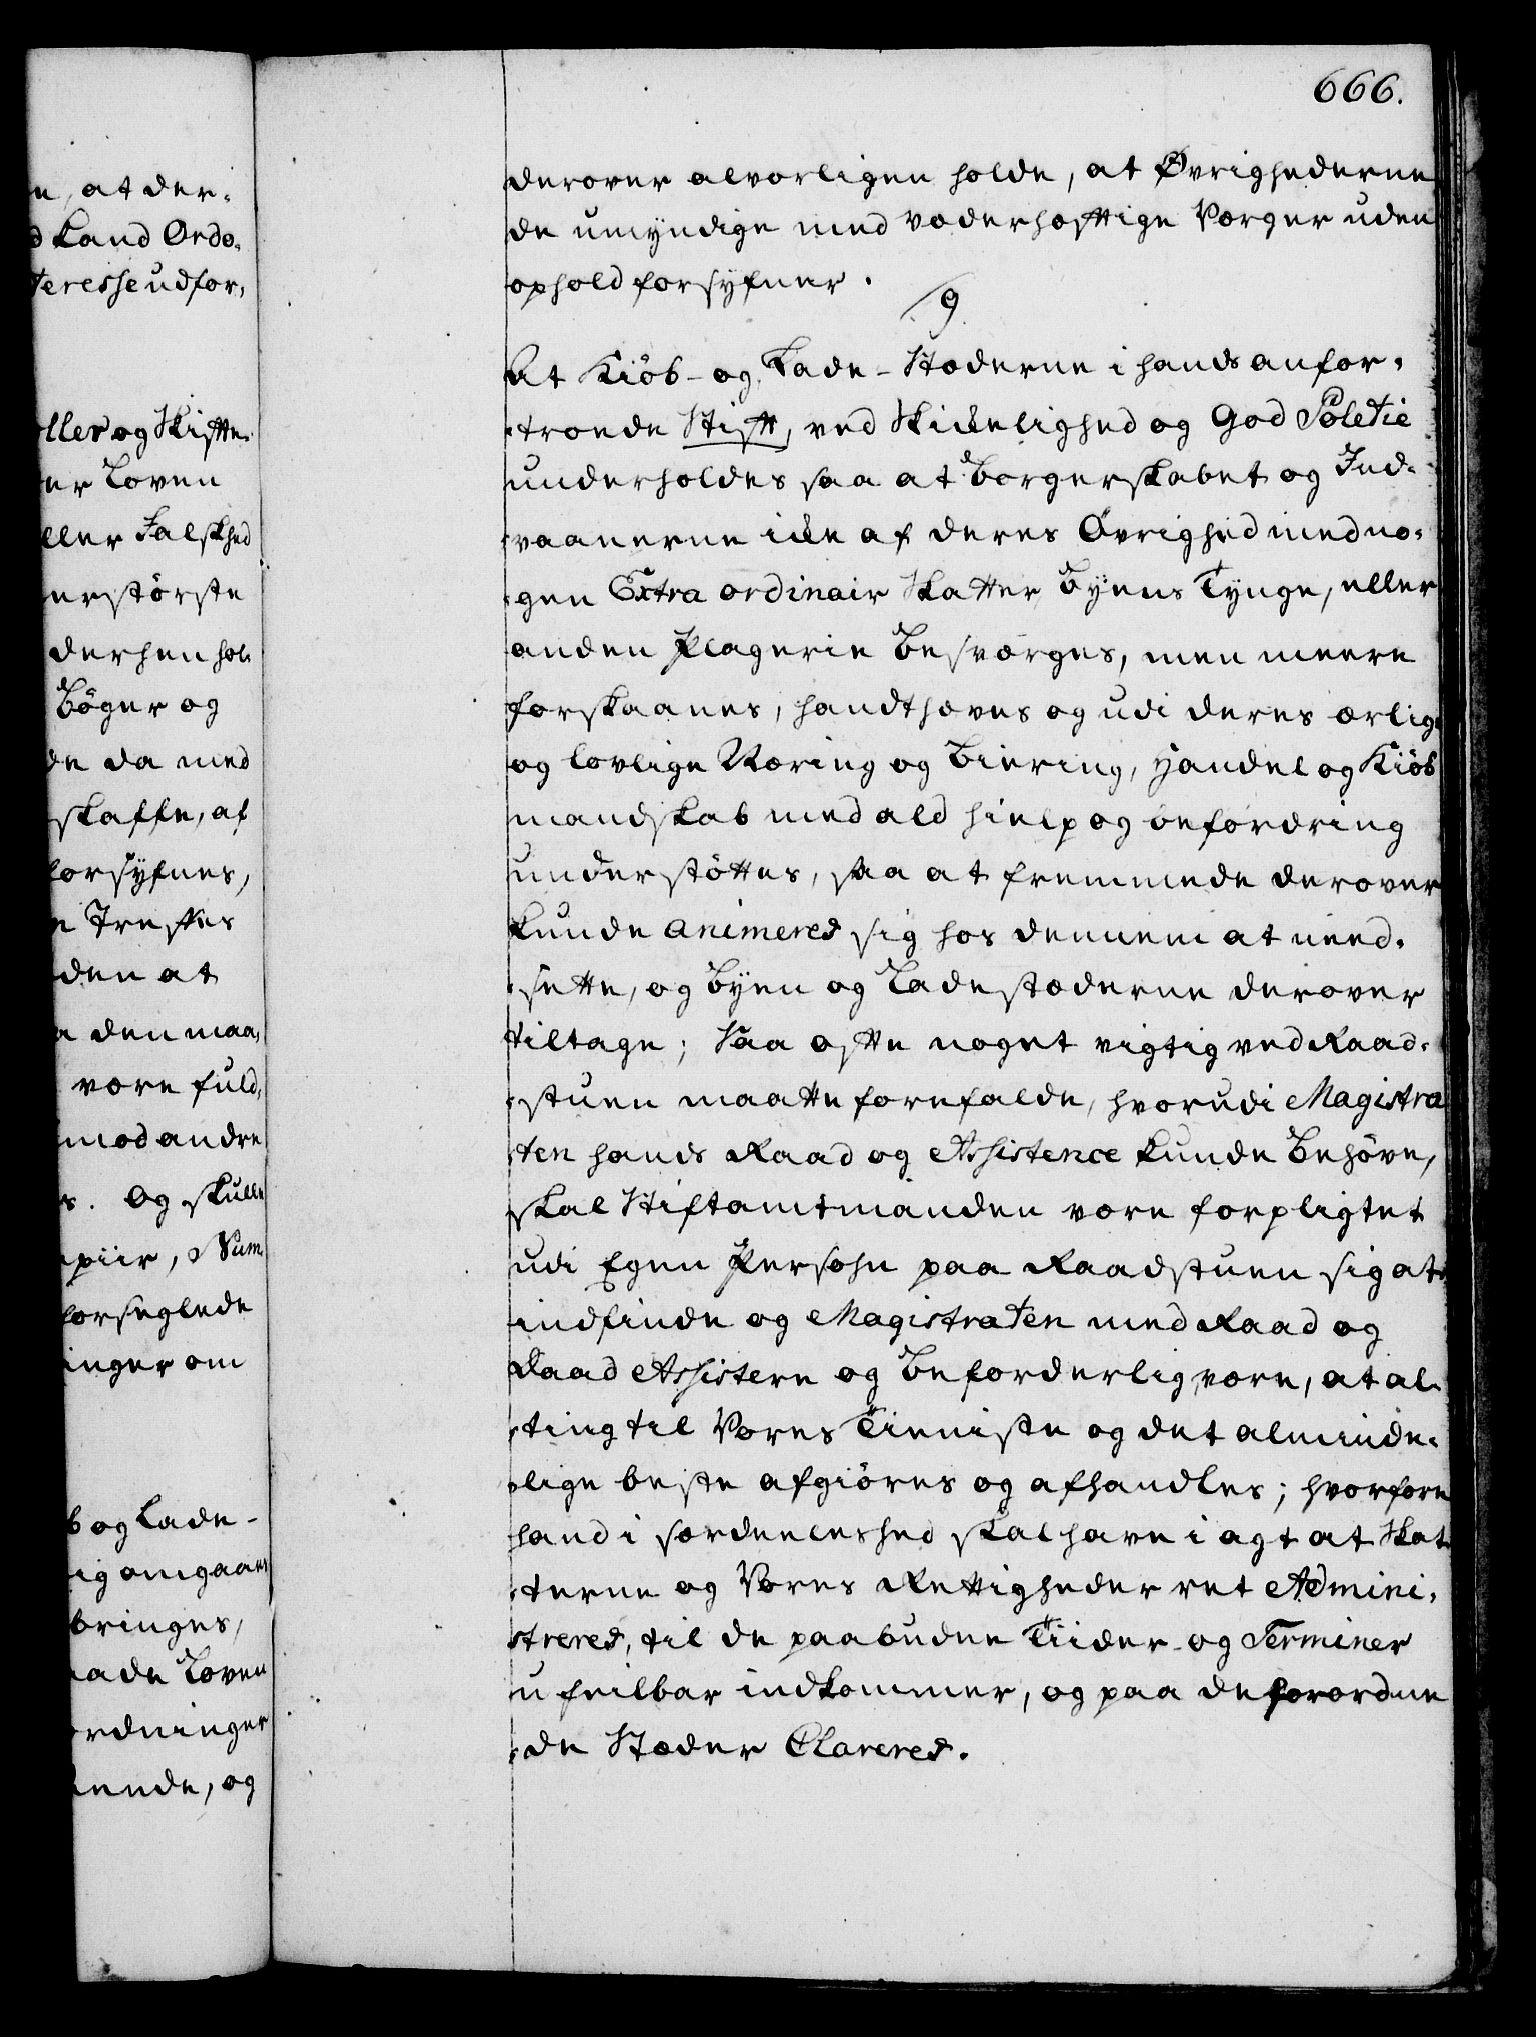 666.
n, at der-
d Land Ordo-
teresse udfor,
ller og Skiffte-
er Loven
ller Falskhed
nrstörste
derhen hol-
Böger og
de da med
skaffe, af
forsÿfnes,
n Treffes
den at
a den maa,
være fuld,
mod andre
s. og skulle
piir, Num-
forseglede
inger om
b og Lade-
ig omgaaes
bringes,
aade Loven
ordninger
kende, og
derover alvorligen holde, at Øvrighederne
de umÿndige med Vederhæfftige Værger uden
ophold forsÿfner.
9
At Kiöb- og Lade-Stæderne i hands anfor-
troede Stifft, ved Skickelighed og God Poletie
underholdes saa at borgerskabet og Ind-
vaanerne icke af deres Övrighed med no-
gen Extra ordinair Skatter, Bÿens Tÿnge, eller
anden Plagerie besværges, men meere
forskaanes, handthæves og udi deres ærlig
og lovlige Næring og Biering, Handel og Kiöb
mandskab med ald hielp og befordring
understöttes, saa at fremmede derover
kunde animeres sig hos dennem at need-
sette, og bÿen og Ladestæderne derover
tiltage; Saa offte noget vigtig ved Raad-
stuen maatte forefalde, hvorudi Magistra
ten hands Raad og Assistence kunde behöve,
skal Stiftamtmanden være forpligtet
udi Egen Persohn paa Raadstuen sig at
indfinde og Magistraten med Raad og
Daad Assistere og beforderlig være, at al-
ting til Vores Tieniste og det alminde-
lige beste afgiöres og afhandles; hvorfore
hand i særdeeleshed skal have i agt at Skat
terne og Vores Rettigheder ret Admini-
streres, til de paabudne Tiider og Terminer
ufeilbar indkommer, og paa de forordne
de Stæder Clareres.